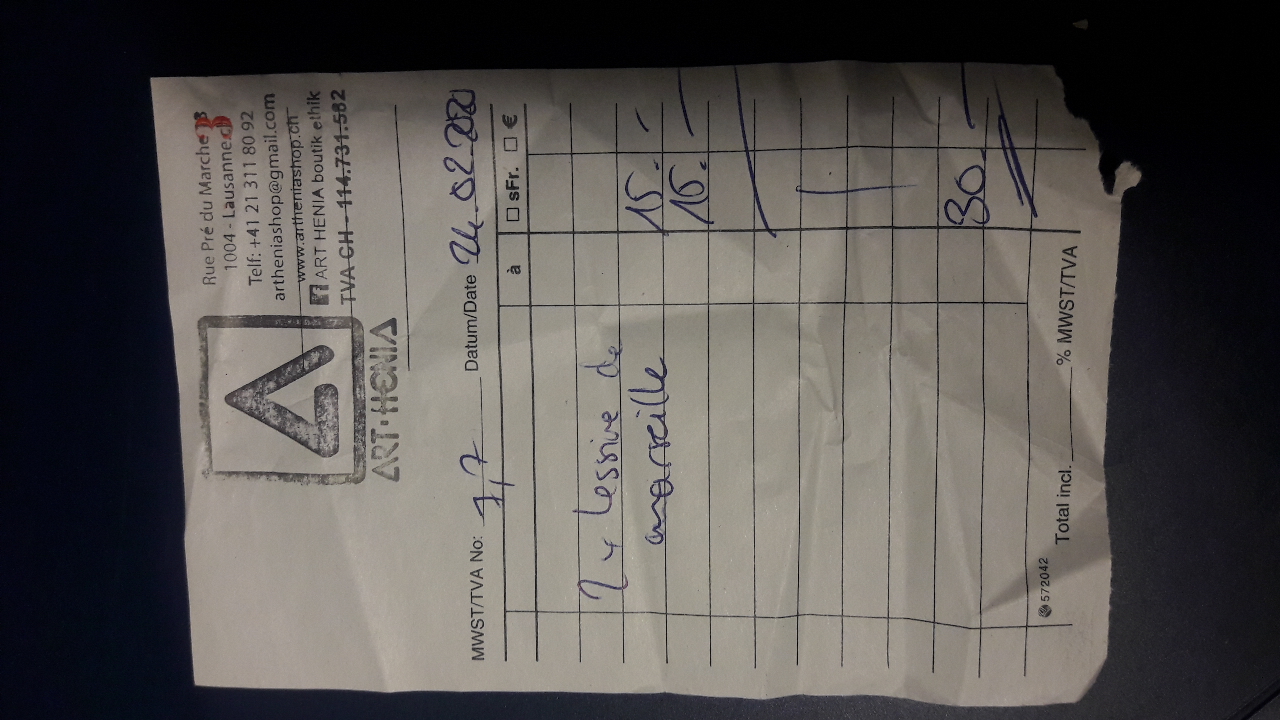 Rue Pré du Marche 3
1004 - Lausanne.ch
Telf: +41 21 311 80 92
artheniashop@gmail.com
www.artheniashop.ch
ART HENIA boutik ethik
TVA CH - 114.731.582
ART·HENIA
MWST/TVA No: 7,7 Datum/Date 24.02.2020
à sFr. €
2x Lessive de
marseille 15.-
15.-
30.-
572042
Total incl. % MWST/TVA